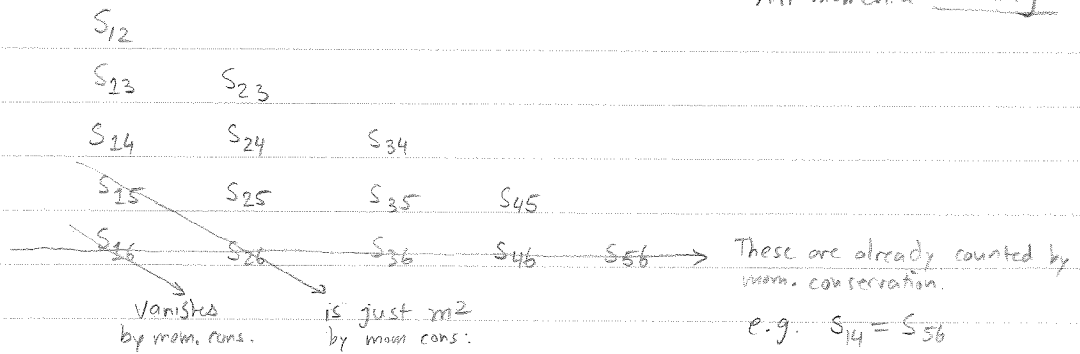 All momenta
S12
S13 S23
S14 S24 S34
S15 S25 S35 S45
S16 S26 S36 S46 S56 These are already counted by
mom. conservation.
vanishes is just m2
by mom. cons. by mom cons: e.g. S14 = S56